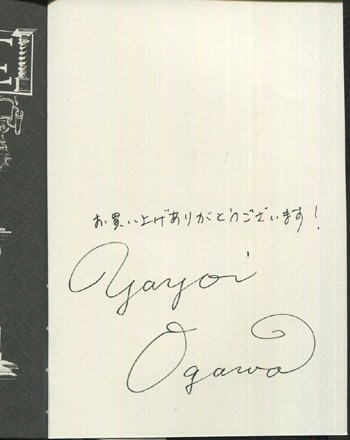 お買い上げありがとうございます!
Yayoi
Ogawa